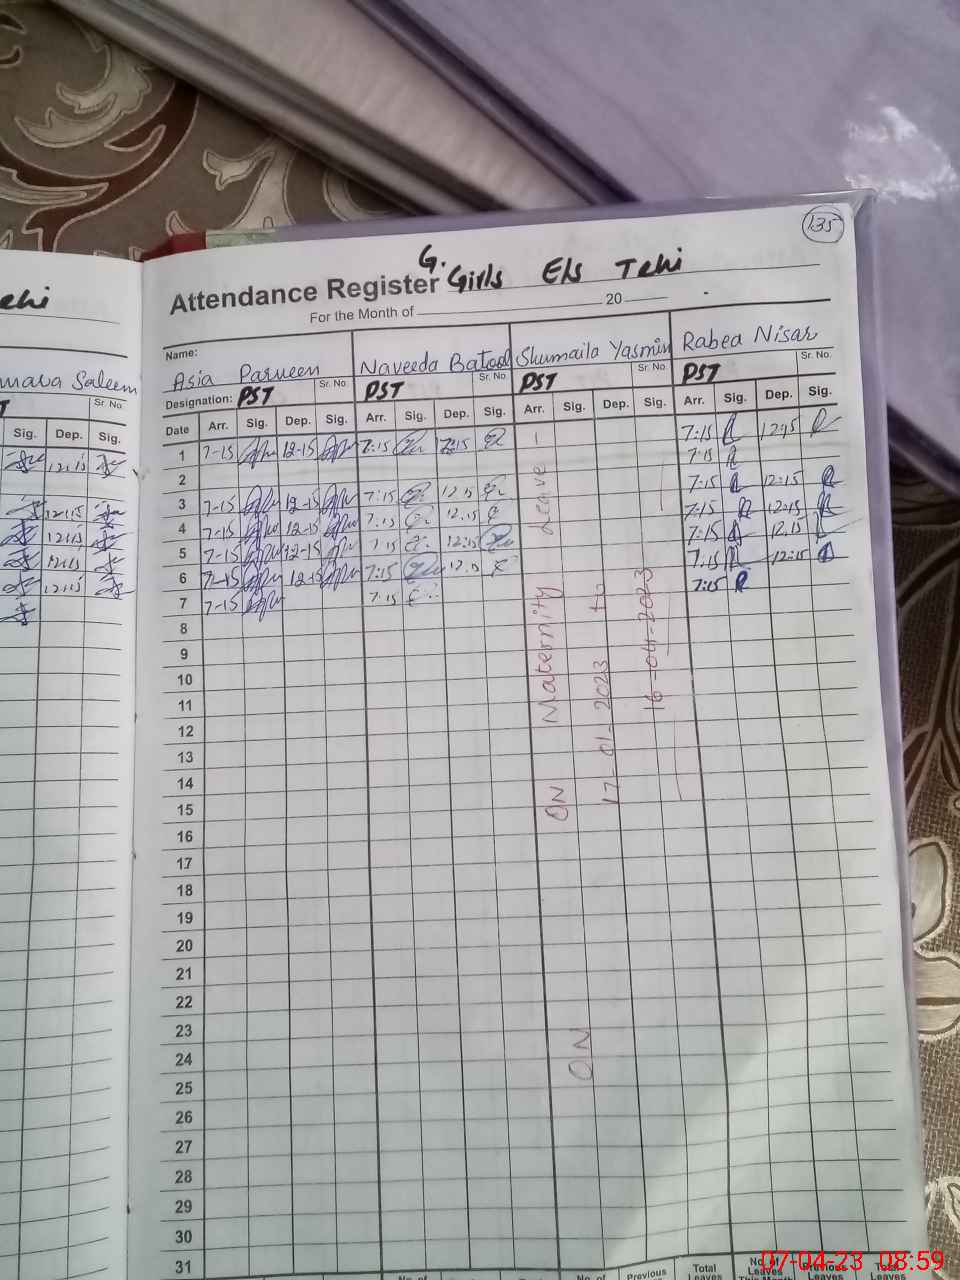 135
G. Girls Els Tehi
Attendance Register
For the Month of 20
ehi
Name:
Asia Parveen Naveeda Batool Shumaila Yasmin Rabea Nisar
Saleem
Sr. No. Sr. No. Sr. No. Sr. No. Sr. No.
Designation: PST PST PST PST
Sig. Dep. Sig. Date Arr. Sig. Dep. Sig. Arr. Sig. Dep. Sig. Arr. Sig. Dep. Sig. Arr. Sig. Dep. Sig.
12:15 1 7-15 12-15 7:15 7:15 12:15
2 7:15
12:15 3 7-15 12-15 7:15 12.15 7:15 12:15
12:15 4 7-15 12-15 7:15 12.15 7:15 12:15
12:15 5 7-15 12-15 7:15 12:15 7:15 12.15
12:15 6 7-15 12-15 7:15 7:15 12:15
7 7-15 7:15 7:15
8
9
10
11
12
13
14
15
16
17
18
19
20
21
22
23
24
25
26
27
28
29
30
31
ON Maternity Leave -
17-01-2023 to
16-04-2023
ON
No. of No. of Previous Total Leaves No. of Leaves This Month Previous Leaves Total Leaves
07-04-23 08:59